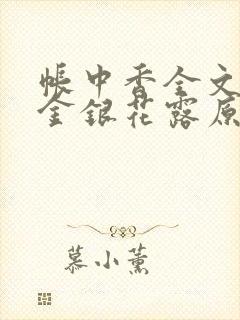 帳中香全文
金銀花露原
慕小薰